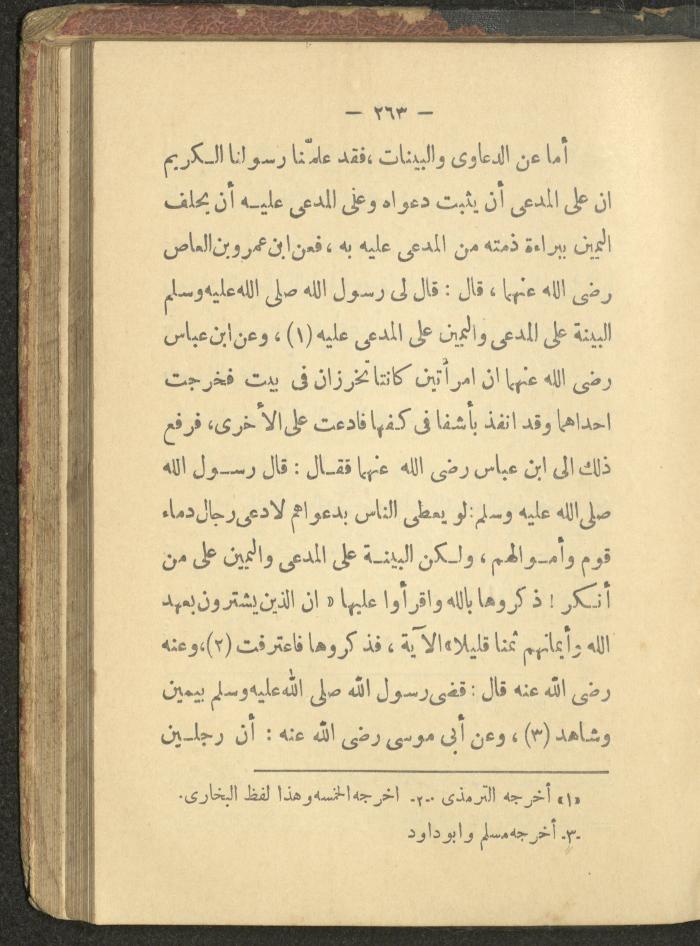 — ٢٦٣ —
أما عن الدعاوى والبينات ، فقد علمّنا رسولنا الكريم
ان على المدعى أن يثبت دعواه وعلى المدعى عليه أن يحلف
اليمين ببراءة ذمته من المدعى عليه به ، فعن ابن عمرو بن العاص
رضى الله عنهما ، قال : قال لى رسول الله صلى الله عليه وسلم
البينة على المدعى واليمين على المدعى عليه (١) ، وعن ابن عباس
رضى الله عنهما ان امرأتين كانتا تخرزان فى بيت فخرجت
احداهما وقد انفذ بأشفا فى كفها فادعت على الأخرى، فرفع
ذلك الى ابن عباس رضى الله عنهما فقال : قال رسول الله
صلى الله عليه وسلم: لو يعطى الناس بدعواهم لادعى رجال دماء
قوم وأموالهم ، ولكن البينة على المدعى واليمين على من
أنكر ! ذكروها بالله واقرأوا عليها « ان الذين يشترون بعهد
الله وأيمانهم ثمنا قليلا» الآية ، فذكروها فاعترفت (٢)، وعنه
رضى الله عنه قال : قضى رسول الله صلى الله عليه وسلم بيمين
وشاهد (٣) ، وعن أبى موسى رضى الله عنه : أن رجلين
«١» أخرجه الترمذى -٢- اخرجه الخمسه وهذا لفظ البخارى.
-٣- أخرجه مسلم وابو داود